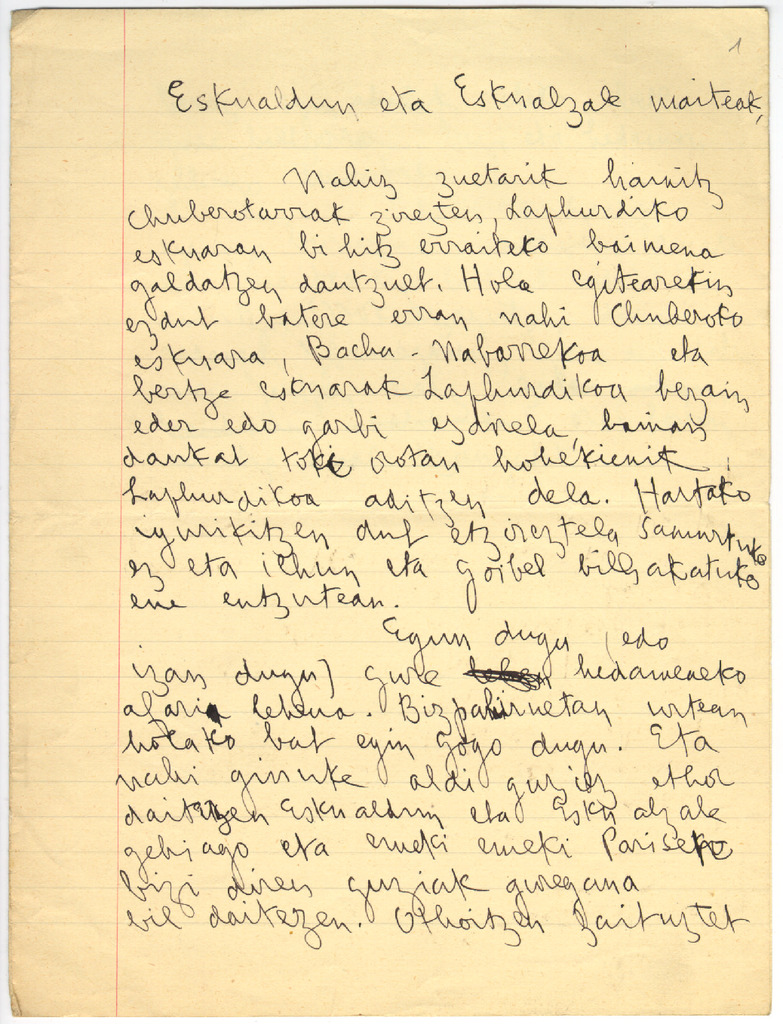 1
Eskualdun eta Eskualzale maiteak,
Nahiz zuetarik hainitz
Chuberotarrak zirezten, Laphurdiko
eskuaran bi hitz erraiteko baimena
galdatzen dautzuet. Hola egitearekin
ez dut batere erran nahi Chuberoko
eskuara, Bacha-Nabarrekoa eta
bertze eskuarak Laphurdikoa bezain
eder edo garbi ez direla, bainan
daukat toki orotan hobekienik
Laphurdikoa aditzen dela. Hartako
igurikitzen dut etzireztela samurtuko
ez eta ilhun eta goibel bilhakatuko
ene entzutean.
Egun dugu (edo
izan dugu) gure hedameneko
afaria lehena. Bizpahiruetan urtean
holako bat egin gogo dugu. Eta
nahi ginuke aldi guziez ethor
daitezen Eskualdun eta Eskualzale
gehiago eta emeki emeki Pariseko
bizi diren guziak guregana
bil daitezen. Othoitzen zaituztet